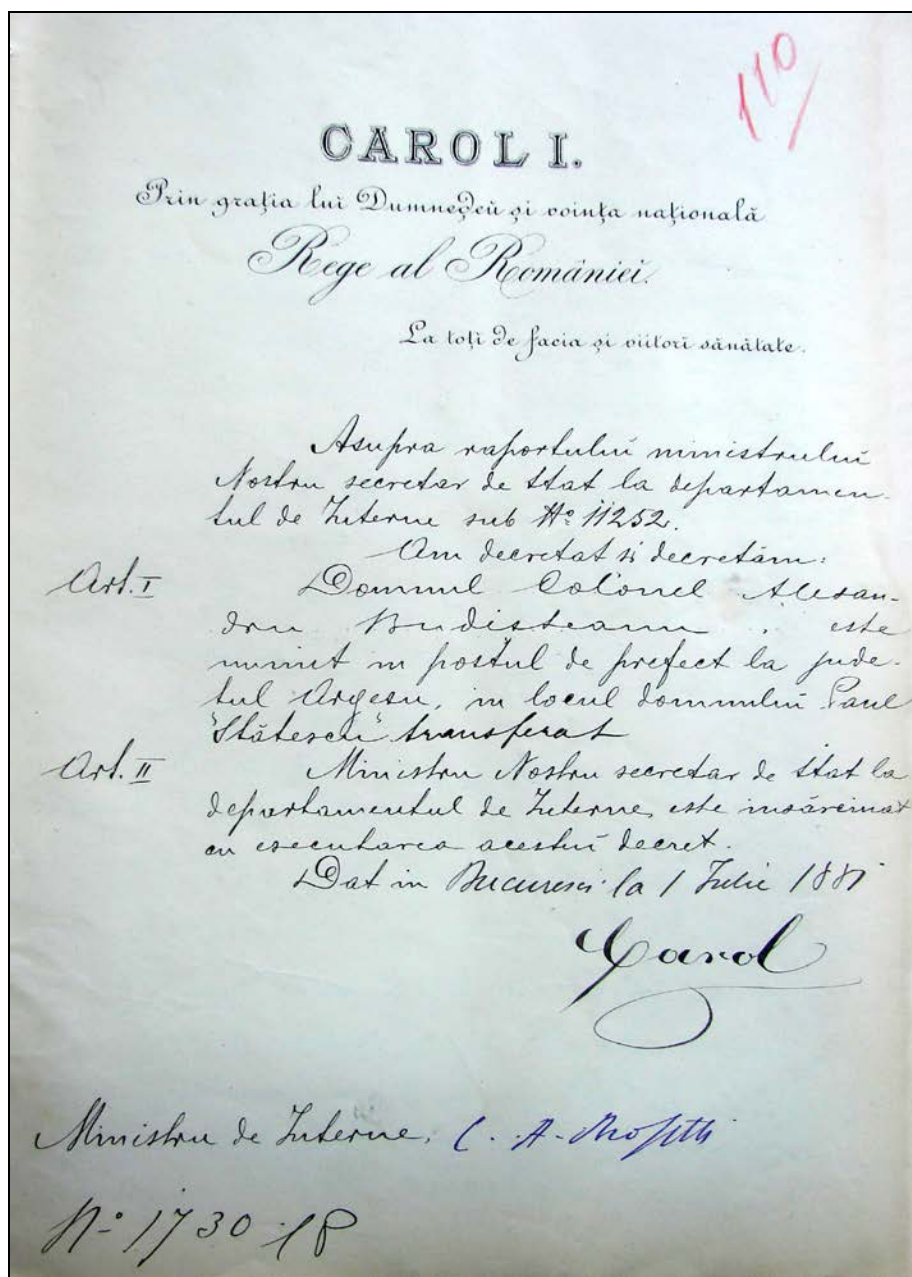 110
CAROL I.
Prin grația lui Dumneḑeŭ și voința națională
Rege al Româniĕi.
La toți de facia și viitori sănătate.
Asupra raportuluĭ ministruluĭ
Nostru secretar de Stat la departamen-
tul de Interne sub No 11252.
Am decretat si decretăm:
Art. I
Domnul Colonel Alesan-
dru Budisteanu . este
numit in postul de prefect la jude-
tul Argesu, in locul domnului Paul
Stătescu transferat
Art. II
Ministru Nostru secretar de Stat la
departamentul de Interne, este insărcinat
cu esecutarea acestuĭ decret.
Dat in Bucuresci la 1 Iulie 1881
Carol
Ministru de Interne, C. A. Rosetti
No 1730